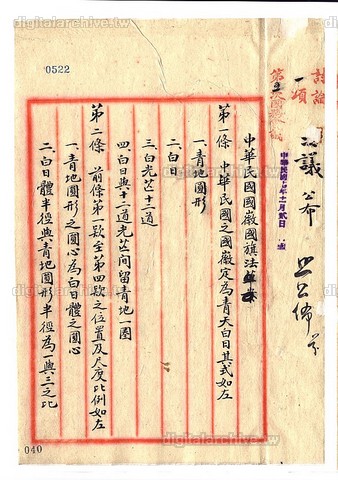 0522
討論
一項
決議 公布
中華民國國徽國旗法草案
第一條 中華民國之國徽定為青天白日其式如左
一、青地圓形
二、白日
三、白光芒十二道
四、白日與十二道光芒間留青地一圈
第二條 前條第一款至第四款之位置及尺度比例如左
一、青地圓形之圓心為白日體之圓心
二、白日體半徑與青地圓形半徑為一與三之比
040
digitalarchive.tw
digitalarchive.tw
digitalarchive.tw
digitalarchive.tw
digitalarchive.tw